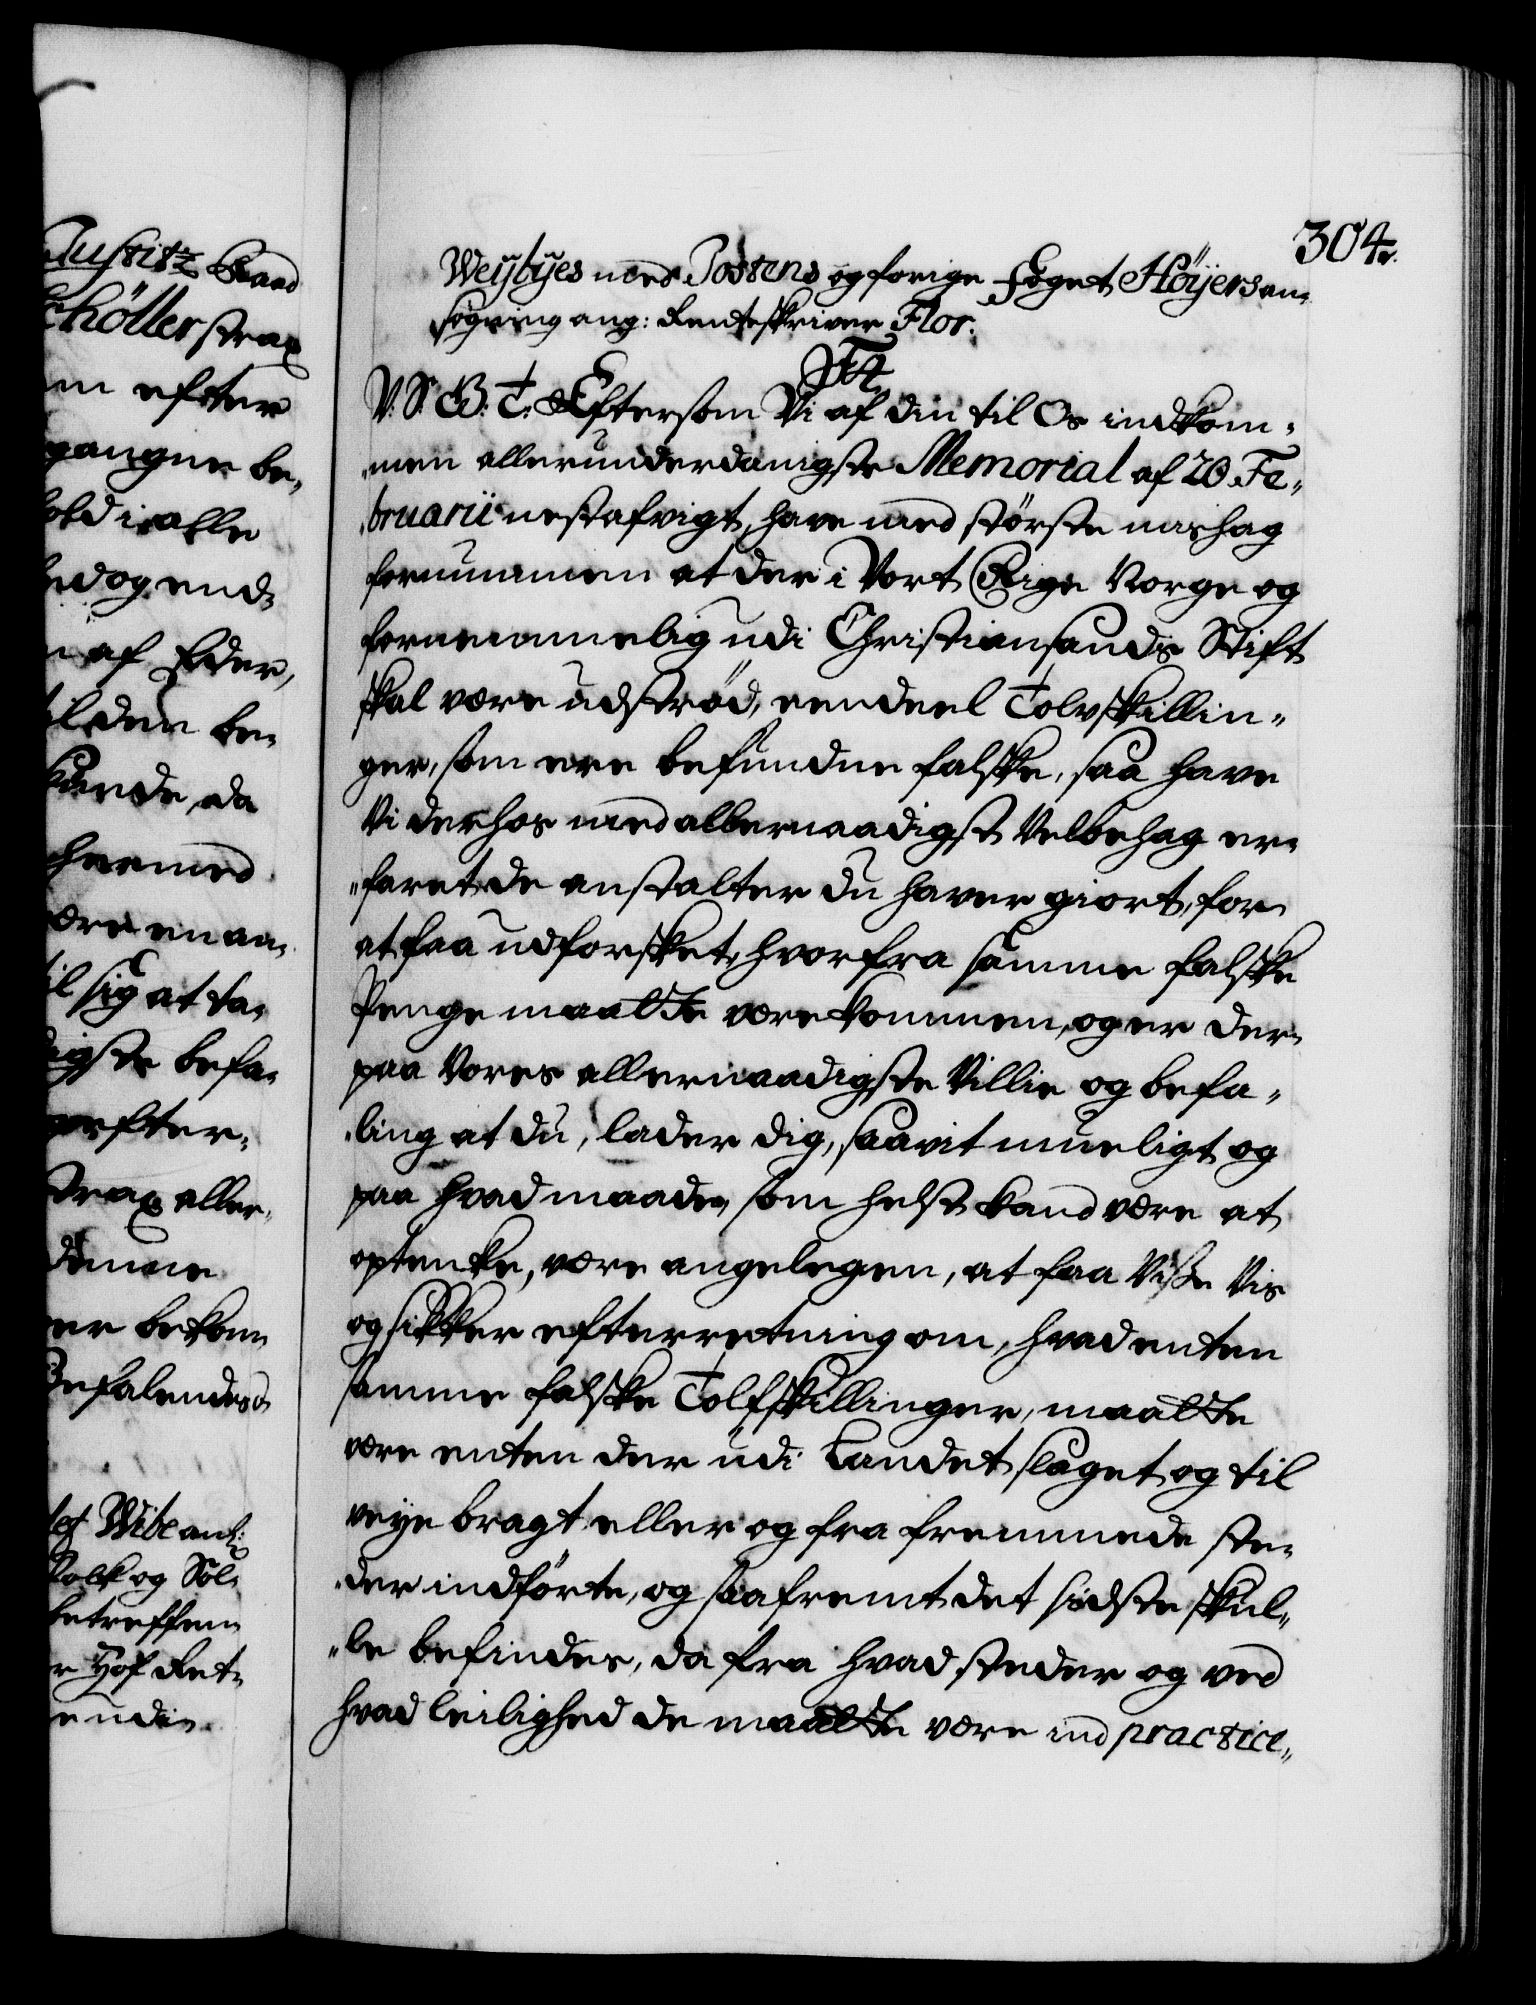 Justitz Raad
Schöller strax
efter
gangne be-
holdisalle
og end-
af Eder,
ilder be-
kunde, da
hermed
være en aa-
til sig at ta-
digste befa-
efter-
strax aller-
Bekom-
Befalendes
Wibe anl:
Folk og Söl-
betreffen-
r Hof Ret-
endis.
304.
Weylyes med Postens og forige Foget Höÿers an-
søgning ang: Renteskriver Flor.
V. S. G: T: Eftersom Vi af din til Os indkom-
men allerunderdanigste Memorial af 20 Fe-
bruarii nestafvigt, have med største mishag
fornummen at der i Vort Rige Norge og
fornemmelig udi Christiansands Stift
skal være udstrød, eendeel Tolvskillin-
ger, som ere befundne falske, saa have
Vi derhos med allernaadigst Velbehag er-
faret de anstalter du haver giort, for
at faa udforsket, hvorfra samme falske
Penge maatte være kommen, og er der-
paa Vores allernaadigste Villie og befa-
ling at du, lader dig, saavit mueligt og
paa hvad maade, som helst kand være at
optenke, være angelegen, at faa Visse Vis
og sikker efterretning om, hvad enten
samme falske Tolfskillinger, maatte
være enten der udi Landet slaget og til
veye bragt eller og fra fremmede ste-
der indførte, og saafremt det sidste skul-
le befindes, da fra hvad steder og ved
hvad leilighed de maatte være ind practice-